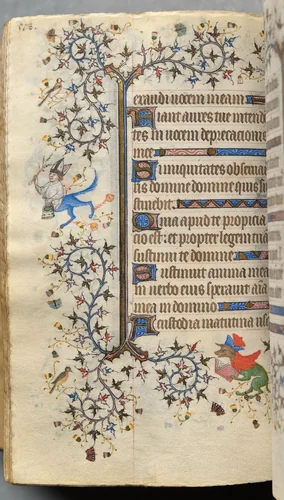 exaudi uocem meam
Fiant aures tue intende
tes in uocem deprecacionis
mee
Si iniquitates obserua
ris domine domine quis su
stinebit
Quia apud te propicia
cio est: et propter legem tua
sustinui te domine
Sustinuit anima mea
in uerbo eius sperauit a
mea in domino
A custodia matutina us